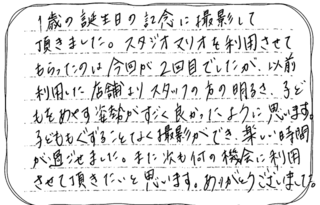 1歳の誕生日の記念に撮影して
頂きました。スタジオマリオを利用させて
もらったのは今回が2回目でしたが、以前
利用した店舗よりスタッフの方の明るさ、子ど
もをあやす姿勢がすごく良かったように思います。
子どももぐずることなく撮影ができ、楽しい時間
が過ごせました。また次も何の機会に利用
させて頂きたいと思います。ありがとうございました。